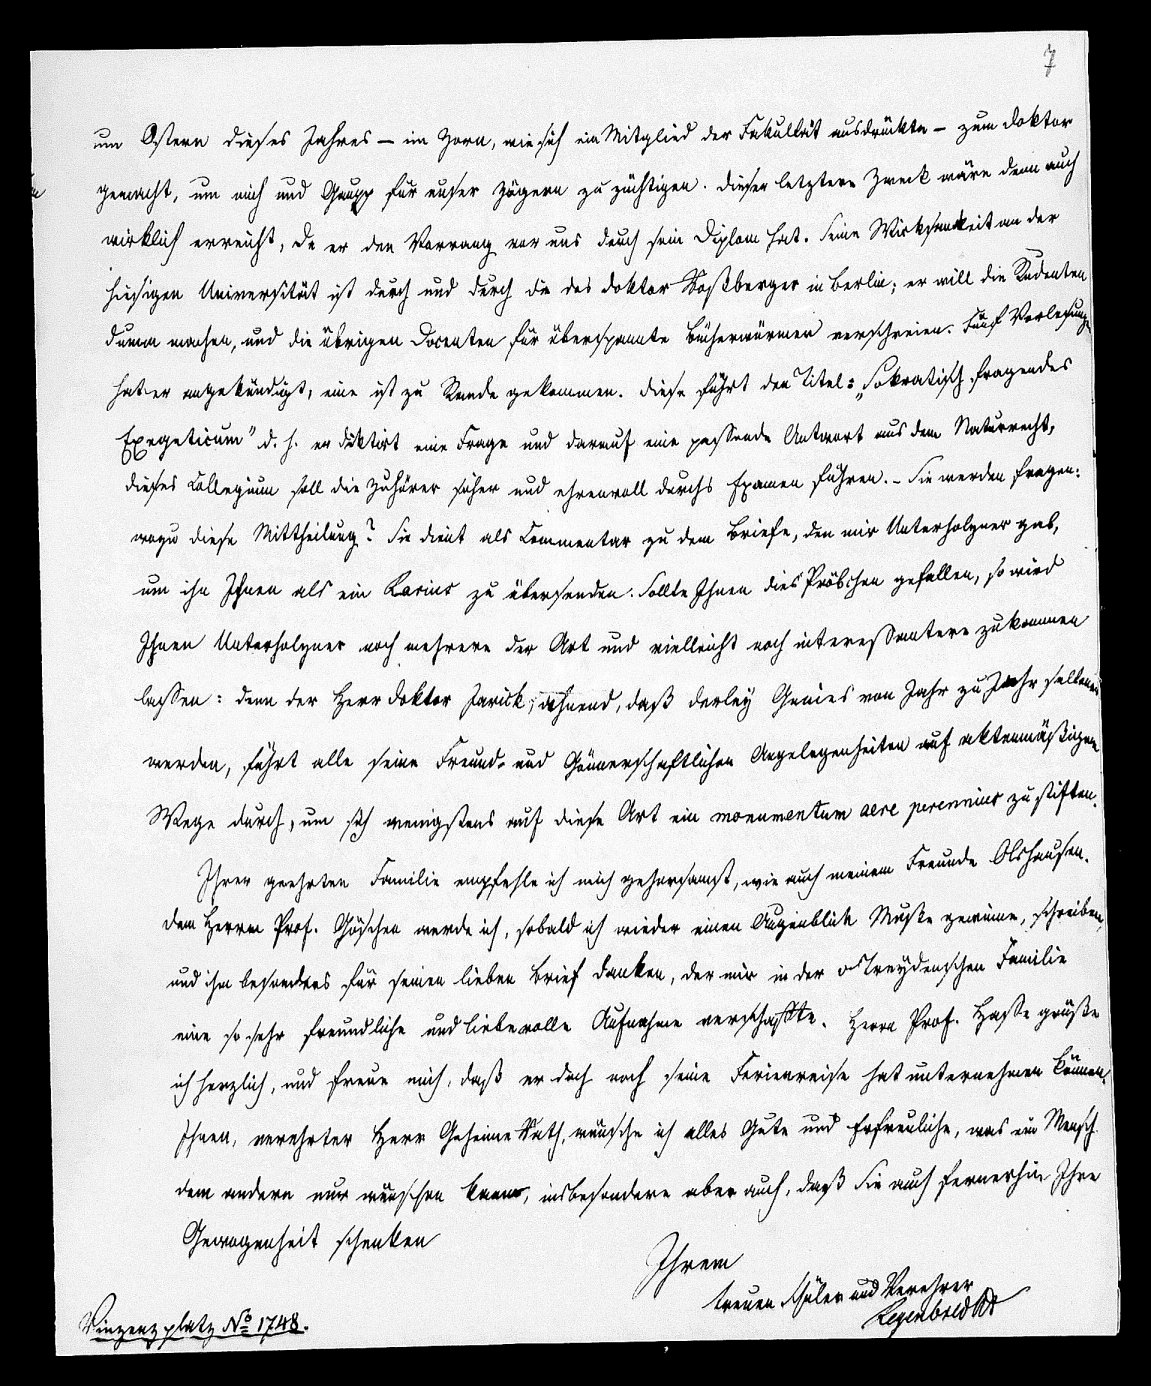 7
um Ostern dieses Jahres – im Zorn, wie sich ein Mitglied der Fakultät ausdrückte – zum Doktor
gemacht, um mich und Gaupp für unser Zögern zu züchtigen. Dieser letztere Zweck wäre denn auch
wirklich erreicht, da er den Vorrang vor uns durch sein Diplom hat. Seine Wirksamkeit an der
hiesigen Universität ist durch und durch die des Doktor Roßberger in Berlin; er will die Studenten
dumm machen, und die übrigen Docenten für überspannte Bücherwürmer verschreien. Fünf Vorlesungen
hat er angekündigt, eine ist zu Stande gekommen. Diese führt den Titel: „Sokratisch fragendes
Exegeticum" d. h. er diktirt eine Frage und darauf eine passende Antwort aus dem Naturrecht,
dieses Collegium soll die Zuhörer sicher und ehrenvoll durchs Examen führen. – Sie werden fragen:
wozu diese Mittheilung? Sie dient als Commentar zu dem Briefe, den mir Unterholzner gab,
um ihn Ihnen als ein Rarius zu übersenden. Sollte Ihnen dies Pröbchen gefallen, so wird
Ihnen Unterholzner noch mehrere der Art und vielleicht noch interessantere zukommen
lassen: denn der Herr Doktor Jarick, ahnend, daß derley Genies von Jahr zu Jahr seltener
werden, führt alle seine Freund- und Gönnerschaftlichen Angelegenheiten auf aktenmäßigem
Wege durch, um sich wenigstens auf diese Art ein monumentum aere perennius zu stiften.
Ihrer geehrten Familie empfehle ich mich gehorsamst, wie auch meinem Freunde Olshausen.
Dem Herrn Prof. Göschen werde ich, sobald ich wieder einen Augenblick Muße gewinne, schreiben,
und ihm besonders für seinen lieben Brief danken, der mir in der v Treydenschen Familie
eine so sehr freundliche und liebevolle Aufnahme verschaffte. Herrn Prof. Hasse grüße
ich herzlich, und freue mich, daß er doch noch seine Ferienreise hat unternehmen können.
Ihnen, verehrter Herr Geheime Rath, wünsche ich alles Gute und Erfreuliche, was ein Mensch
dem andern nur wünschen kann, insbesondere aber auch, daß Sie auch fernerhin Ihre
Gewogenheit schenken
Ihrem
treuen Schüler und Verehrer
Regenbrecht
Vinzenzplatz No 1748.